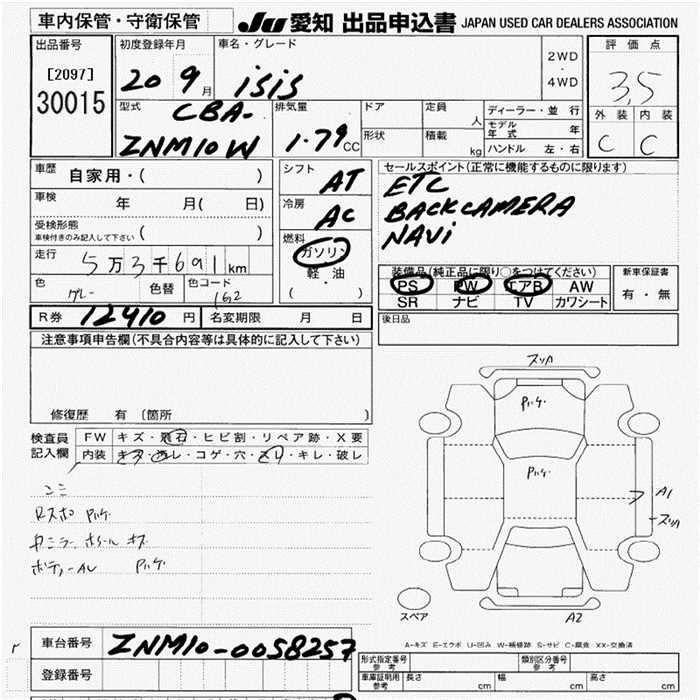 車内保管・守衛保管
JU 愛知 出品申込書 JAPAN USED CAR DEALERS ASSOCIATION
出品番号
[2097]
30015
初度登録年月
20 9月
車名・グレード
isis
2WD
・
4WD
評価点
3,5
外装 内装
C C
型式
CBA-
ZNM10W
排気量
1.79 CC
ドア
定員
人
形状
積載
kg
ディーラー・並行
モデル年式 年
ハンドル 左・右
車歴
自家用・( )
車検
年 月( 日)
受検形態
車検付きのみ記入して下さい ( )
走行
5万3千691km
色
グレー
色替
色コード
162
シフト
AT
冷房
AC
燃料
ガソリン
軽・油
( ・ )
セールスポイント(正常に機能するものに限ります)
ETC
BACKCAMERA
NAVi
装備品(純正品に限り○をつけてください)
PS PW エアB AW
SR ナビ TV カワシート
新車保証書
有・無
R券 12410 円
名変期限 月 日
後日品
注意事項申告欄(不具合内容等は具体的に記入して下さい)
修復歴 有 (箇所 )
検査員
記入欄
FW キズ・飛石・ヒビ割・リペア跡・X要
内装 キズ・汚レ・コゲ・穴・スレ・キレ・破レ
Rスポ Pハゲ
ボディーAU Pハゲ
スリハ
Pハゲ
Pハゲ
A1
スリハ
A2
スペア
A-キズ E-エクボ U-凹み W-補修跡 S-サビ C-腐食 XX-交換済
車台番号 ZNM10-0058257
登録番号
形式指定番号
参考
類別区分番号
参考
車庫証明用
参考
長さ cm
幅 cm
高さ cm